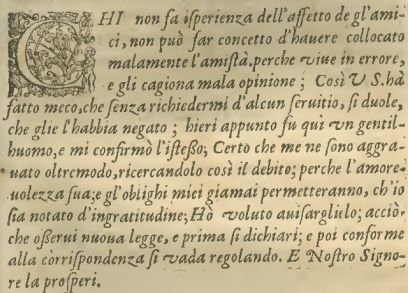 CHI non fa isperienza dell'affetto de gl'ami-
ci, non può far concetto d'hauere collocato
malamente l'amistà, perche viue in errore,
e gli cagiona mala opinione; Così V S. hà
fatto meco, che senza richiedermi d'alcun seruitio, si duole,
che glie l'habbia negato; hieri appunto fu quì vn gentil-
huomo, e mi confirmò l'istesso; Certo che me ne sono aggra-
uato oltremodo, ricercandolo così il debito; perche l'amore-
uolezza sua; e gl'oblighi miei giamai permetteranno, ch'io
sia notato d'ingratitudine; Hò voluto auisargliulo; acciò-
che osserui nuoua legge, e prima si dichiari; e poi conforme
alla corrispondenza si vada regolando. E Nostro Signo-
re la prosperi.